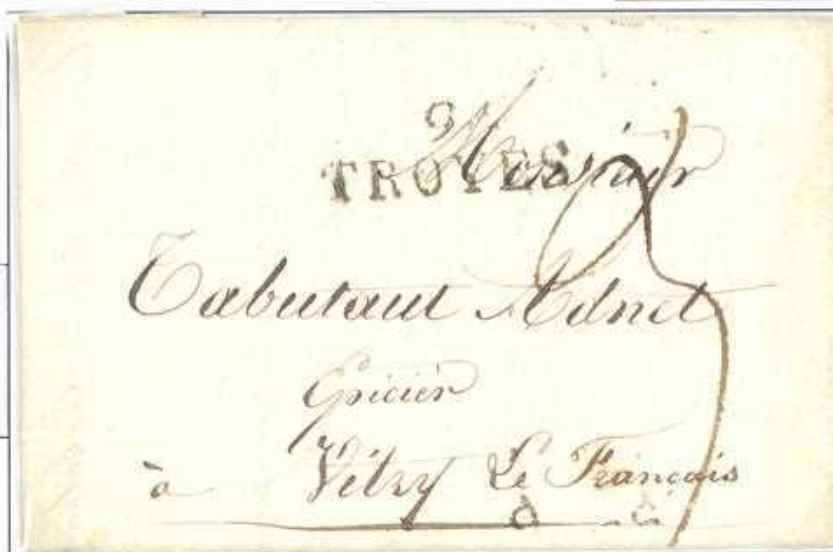 9
TROYES
Monsieur
Tabutaut Adnet
Epicier
à Vitry Le Français